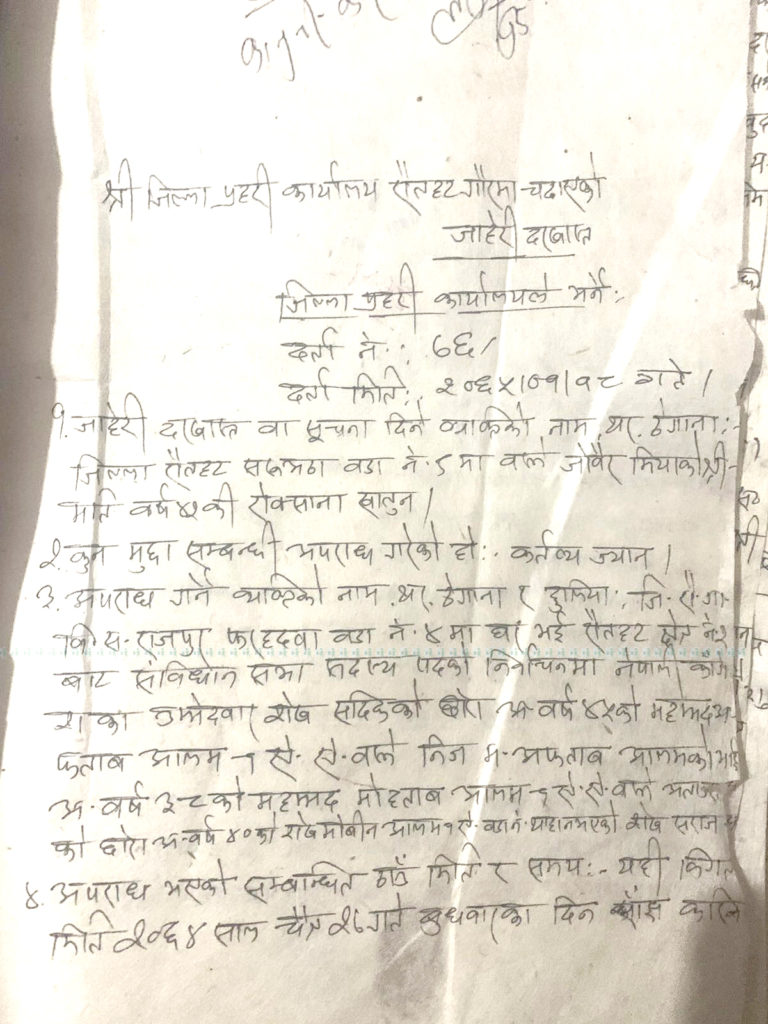 कानुनी
श्री जिल्ला प्रहरी कार्यालय रौतहट गौरमा चढाएको
जाहेरी दरखास्त
जिल्ला प्रहरी कार्यालयले भर्ने:
दर्ता नं.: ७६/
दर्ता मिति: २०६५।०१।१८ गते।
१. जाहेरी दरखास्त वा सूचना दिने व्यक्तिको नाम, थर, ठेगाना:-
जिल्ला रौतहट वडा नं. ५ मा बस्ने मियाको श्री-
मति वर्ष ४२ की रोक्साना खातुन।
२. कुन मुद्दा सम्बन्धी अपराध गरेको हो:- कर्तव्य ज्यान।
३. अपराध गर्ने व्यक्तिको नाम, थर, ठेगाना र हुलिया: जि. रौ. गा-
वि.स. राजपुर फरहदवा वडा नं. ४ मा घर भई रौतहट क्षेत्र नं. २
बाट संविधान सभा सदस्य पदको निर्वाचनमा नेपाली काँग्रे
शका उम्मेदवार शेख सदिकको छोरा अं. वर्ष ४५ को महम्मद अ
फताब आलम १ ऐ. ऐ. बस्ने निज म. अफताब आलमको भाई
अं. वर्ष ३८ को महम्मद मोहताब आलम १ ऐ. ऐ. बस्ने
को छोरा अं. वर्ष ४० को शेख मोबीन आलम १ ऐ. वडा नं. शेख सराज
४. अपराध भएको सम्बन्धित ठाउँ मिति र समय:- यही विगत
मिति २०६४ साल चैत्र २८ गते बुधवारका दिन साँझ करिब